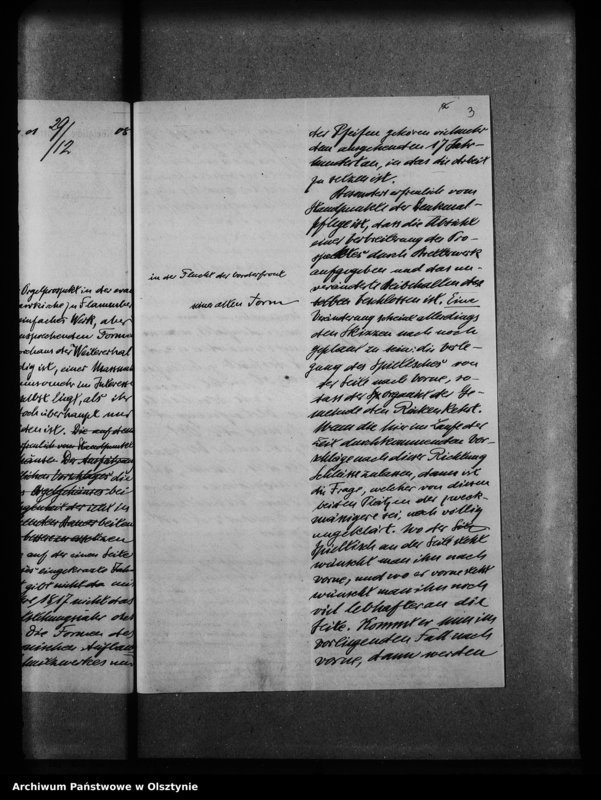 29/12 08
Orgelprospekt in der evan
einfacher Werk, aber
sprechenden Formen
der Weitererhal
dig ist, einer Massnah
umsomehr im Interesse
selbst liegt, als ihr
überhaupt nur
den ist. Die auf dem
vom Standpunkt
die
bei
auf der einen Seite
eingekratzte Jah
gibt nicht da nur
1817 nicht das
stehungsjahr der
Die Formen des
Schnitzwerkes und
3
in der Flucht der Vorderfront
seiner alten Form
der Pfeifen gehören vielmehr
dem ausgehenden 17 Jahr-
hundert an, in das die Arbeit
zu setzen ist.
Besonders erfreulich vom
Standpunkte der Denkmal-
pflege ist, dass die Absicht
einer Verbreiterung des Pro-
spektes durch Brettwerk
aufgegeben und das un-
veränderte Beibehalten des
selben beschlossen ist. Eine
Veränderung scheint allerdings
den Skizzen nach noch
geplant zu sein: die Verle-
gung des Spieltisches von
der Seite nach vorne, so-
dass der Organist der Ge-
meinde den Rücken kehrt.
Wenn die hier im Laufe der
Zeit durchkommenden Vor-
schläge nach dieser Richtung
Schlüsse zulassen, dann ist
die Frage, welcher von diesen
beiden Plätzen der zweck-
mässigere sei, noch völlig
ungeklärt. Wo der
Spieltisch an der Seite steht
wünscht man ihn nach
vorne, und wo er vorne steht
wünscht man ihn noch
viel lebhafter an die
Seite. Kommt er nun im
vorliegenden Fall nach
vorne, dann werden
Archiwum Państwowe w Olsztynie